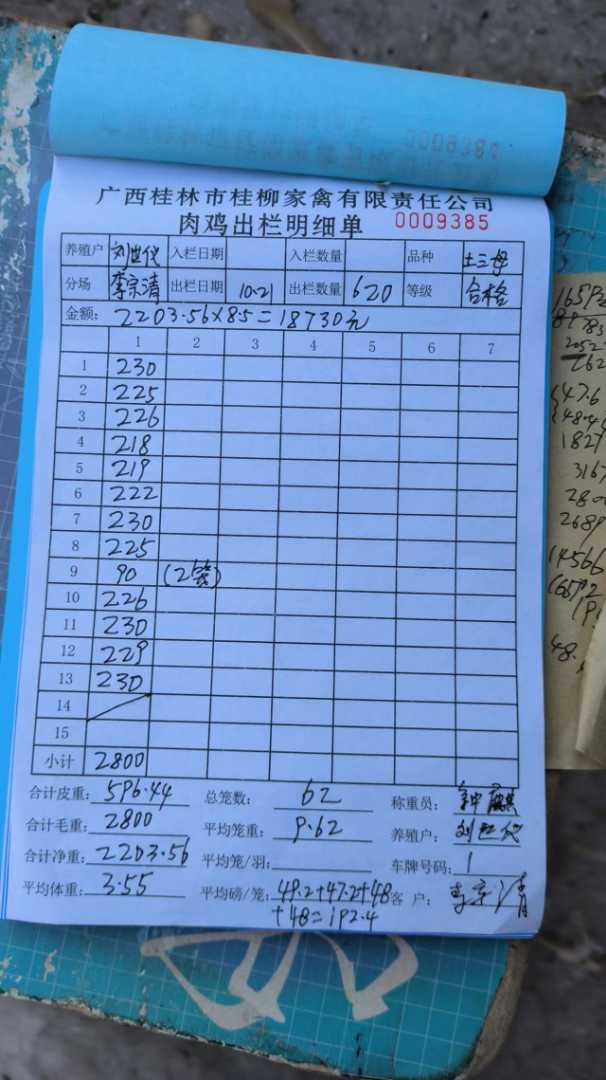 0009384
广西桂林市桂柳家禽有限责任公司
肉鸡出栏明细单 0009385
养殖户 刘世代 入栏日期 入栏数量 品种 土三母
分场 李宗清 出栏日期 10.21 出栏数量 620 等级 合格
金额: 2203.56×8.5=18730元
1 2 3 4 5 6 7
1 230
2 225
3 226
4 218
5 219
6 222
7 230
8 225
9 90 (2笼)
10 226
11 230
12 229
13 230
14
15
小计 2800
合计皮重: 596.44 总笼数: 62 称重员:
合计毛重: 2800 平均笼重: 9.62 养殖户: 刘世代
合计净重: 2203.56 平均笼/羽: 车牌号码: 1
平均体重: 3.55 平均磅/笼: 49.2+47.2+48 客户: 李宗清
+48=192.4
47.6
48.4
1827
3167
2689
14566
48.